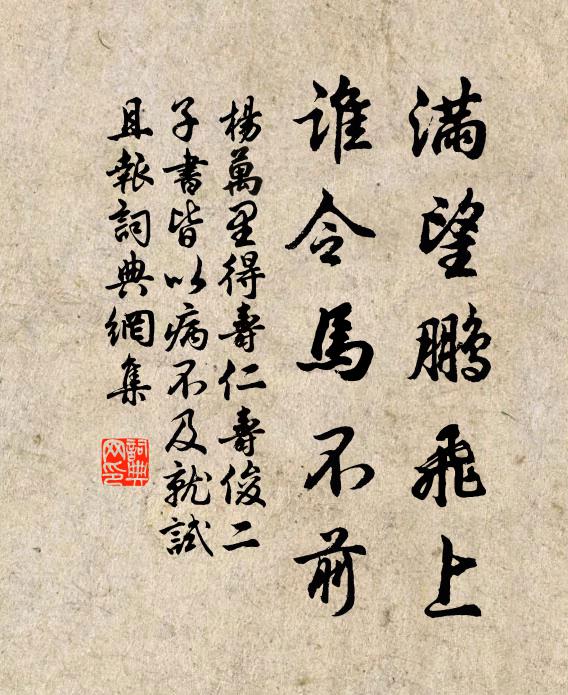 滿望鵬飛上
誰令馬不前
楊萬里得壽仁壽俊二
子書皆以病不及就試
且報詞典網集
詞典网印